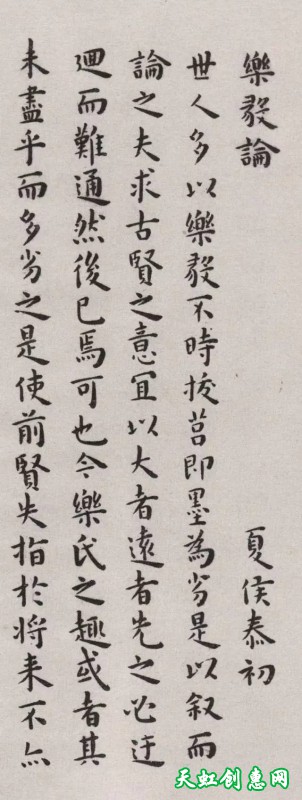 樂毅論 夏侯泰初
世人多以樂毅不時拔莒即墨為劣是以叙而
論之夫求古賢之意宜以大者遠者先之必迂
迴而難通然後已焉可也今樂氏之趣或者其
未盡乎而多劣之是使前賢失指於将来不亦
天虹创惠网